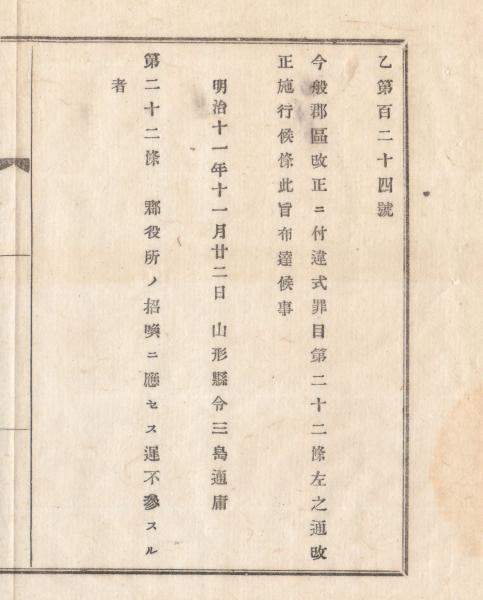 乙第百二十四號
今般郡區改正ニ付違式罪目第二十二條左之通改
正施行候條此旨布達候事
明治十一年十一月廿二日　山形縣令三島通庸
第二十二條　郡役所ノ招喚ニ應セス遲不參スル
者